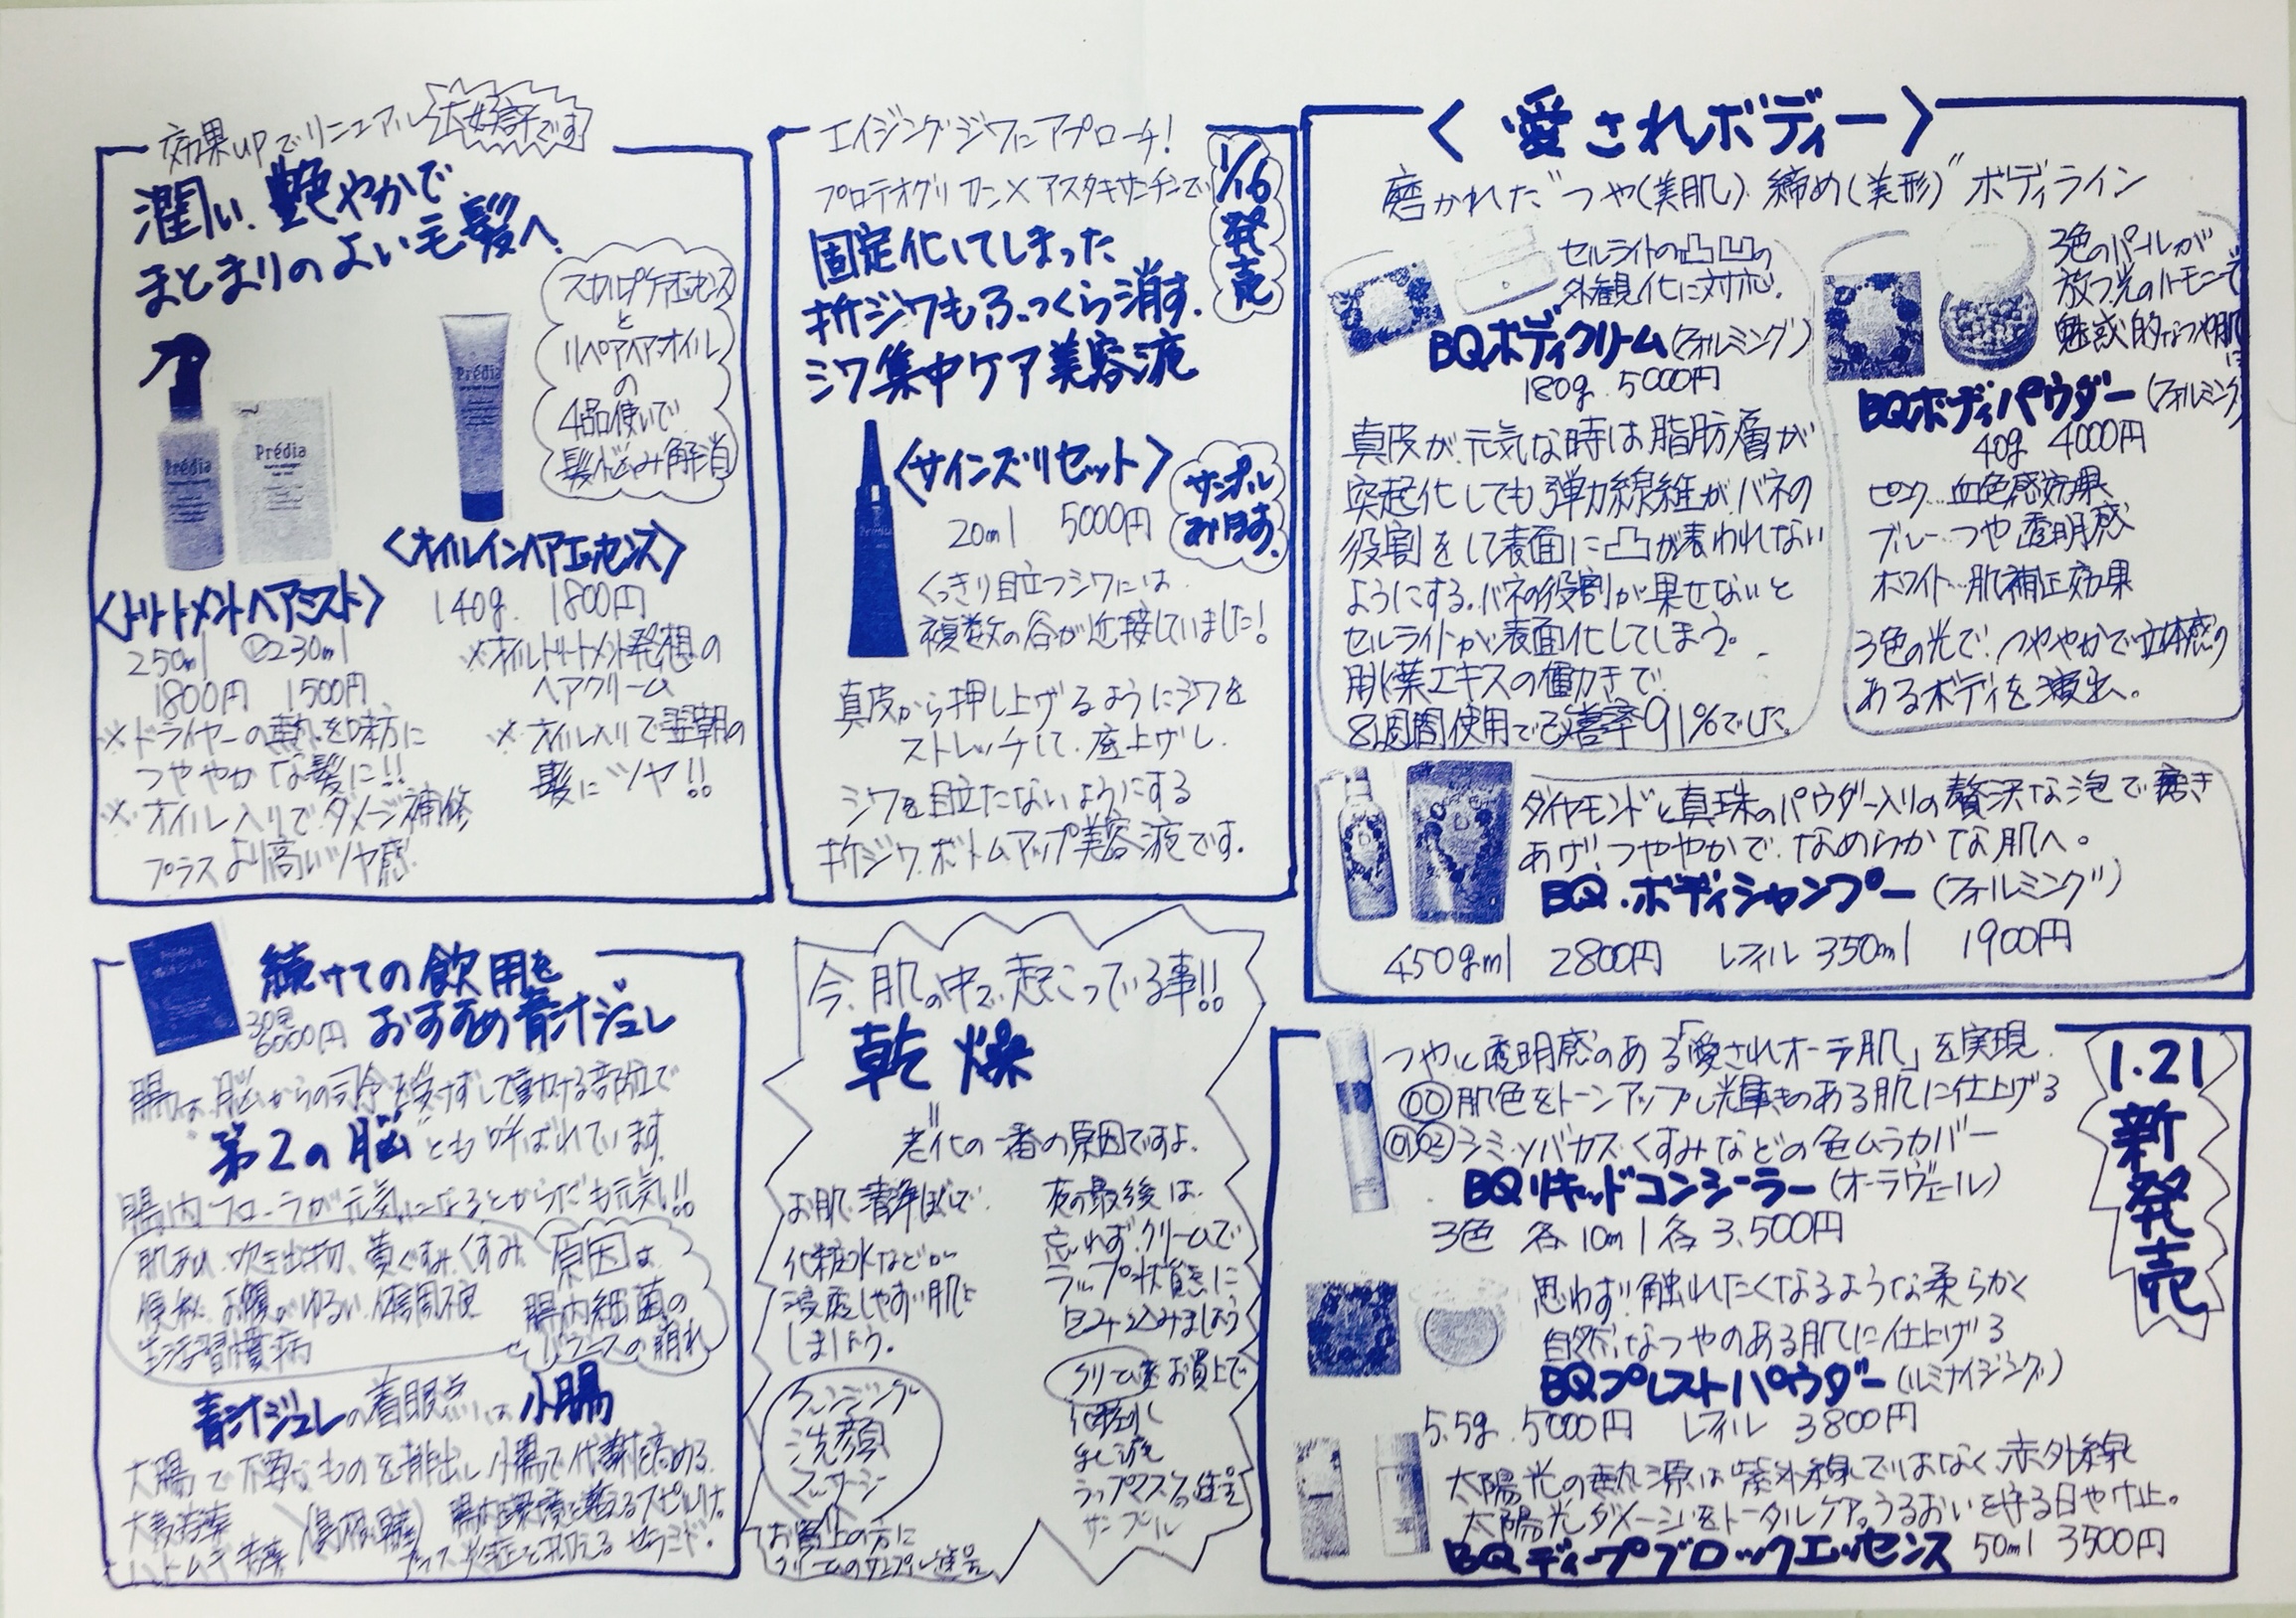 効果upでリニューアル 大好評です
潤い、艶やかで
まとまりのよい毛髪へ
スカルプケアエッセンス
と
リペアヘアオイル
の
4品使いで
髪悩み解消
Prédia
Prédia
Prédia
〈トリートメントヘアミスト〉
250ml 230ml
1800円 1500円
※ドライヤーの熱を味方に
つややかな髪に!!
※オイル入りでダメージ補修
プラスより高いツヤ感
〈オイルインヘアエッセンス〉
140g 1800円
※オイルトリートメント発想の
ヘアクリーム
※オイル入りで翌朝の
髪にツヤ!!
エイジングジワにアプローチ!
プロテオグリカン×アスタキサンチンで
1/16発売
固定化してしまった
折ジワもふっくら消す.
シワ集中ケア美容液
〈サインズリセット〉
20ml 5000円
サンプル
あります.
くっきり目立つシワには
複数の谷が近接していました!
真皮から押し上げるようにシワを
ストレッチして、底上げし
シワを目立たないようにする
折ジワボトムアップ美容液です.
〈愛されボディー〉
磨かれた“つや(美肌)・締め(美形)”ボディライン
セルライトの凸凹の
外観化に対応.
BQボディクリーム(フォルミング)
180g 5000円
真皮が元気な時は脂肪層が
突起化しても弾力線維がバネの
役割をして表面に凸が表われない
ようにする.バネの役割が果せないと
セルライトが表面化してしまう。
葉エキスの働きで
8週間使用で改善率91%でした.
3色のパールが
放つ光のハーモニーで
魅惑的なつや肌に
BQボディパウダー(フォルミング)
40g 4000円
ピンク…血色感効果
ブルー…つや透明感
ホワイト…肌補正効果
3色の光で、つややかで立体感の
あるボディを演出。
ダイヤモンドと真珠のパウダー入りの贅沢な泡で磨き
あげ、つややかで、なめらかな肌へ。
BQ・ボディシャンプー(フォルミング)
450gml 2800円 レフィル 350ml 1900円
続けての飲用を
おすすめ青汁ジュレ
30包
6000円
腸は、脳からの司令を受けずして動ける部位で
“第2の脳”とも呼ばれています.
腸内フローラが元気になるとからだも元気!!
肌あれ、吹き出物、黄ぐすみ、くすみ
便秘 お腹がゆるい 体調不良
生活習慣病
原因は
腸内細菌の
バランスの崩れ
青汁ジュレの着眼点は小腸
大腸で不要なものを排出し小腸で代謝を高める.
大麦若葉
ハトムギ
腸内環境を整える
今、肌の中で、起こっている事!!
乾燥
〃
老化の一番の原因ですよ.
お肌、清浄ぱで
化粧水などが
浸透しやすい肌に
しましょう.
クレンジング
洗顔
マッサージ
お買上の方に
クリームのサンプル進呈
夜の最後は、
忘れず、クリームで
ラップ状態に
包み込みましょう
クリームをお買上で
化粧水
乳液
ラップマスクの進呈
サンプル
つやと透明感のある「愛されオーラ肌」を実現
00 肌色をトーンアップし光輝きのある肌に仕上げる
01 02 シミ・ソバカス・くすみなどの色ムラカバー
BQリキッドコンシーラー(オーラヴェール)
3色 各10ml 各3,500円
1.21
新発売
思わず!触れたくなるような柔らかく
自然なつやのある肌に仕上げる
BQプレストパウダー(ルミナイジング)
5.5g 5000円 レフィル 3800円
太陽光の熱源は紫外線ではなく、赤外線
太陽光ダメージをトータルケア。うるおいを守る日やけ止。
BQディープブロックエッセンス 50ml 3500円